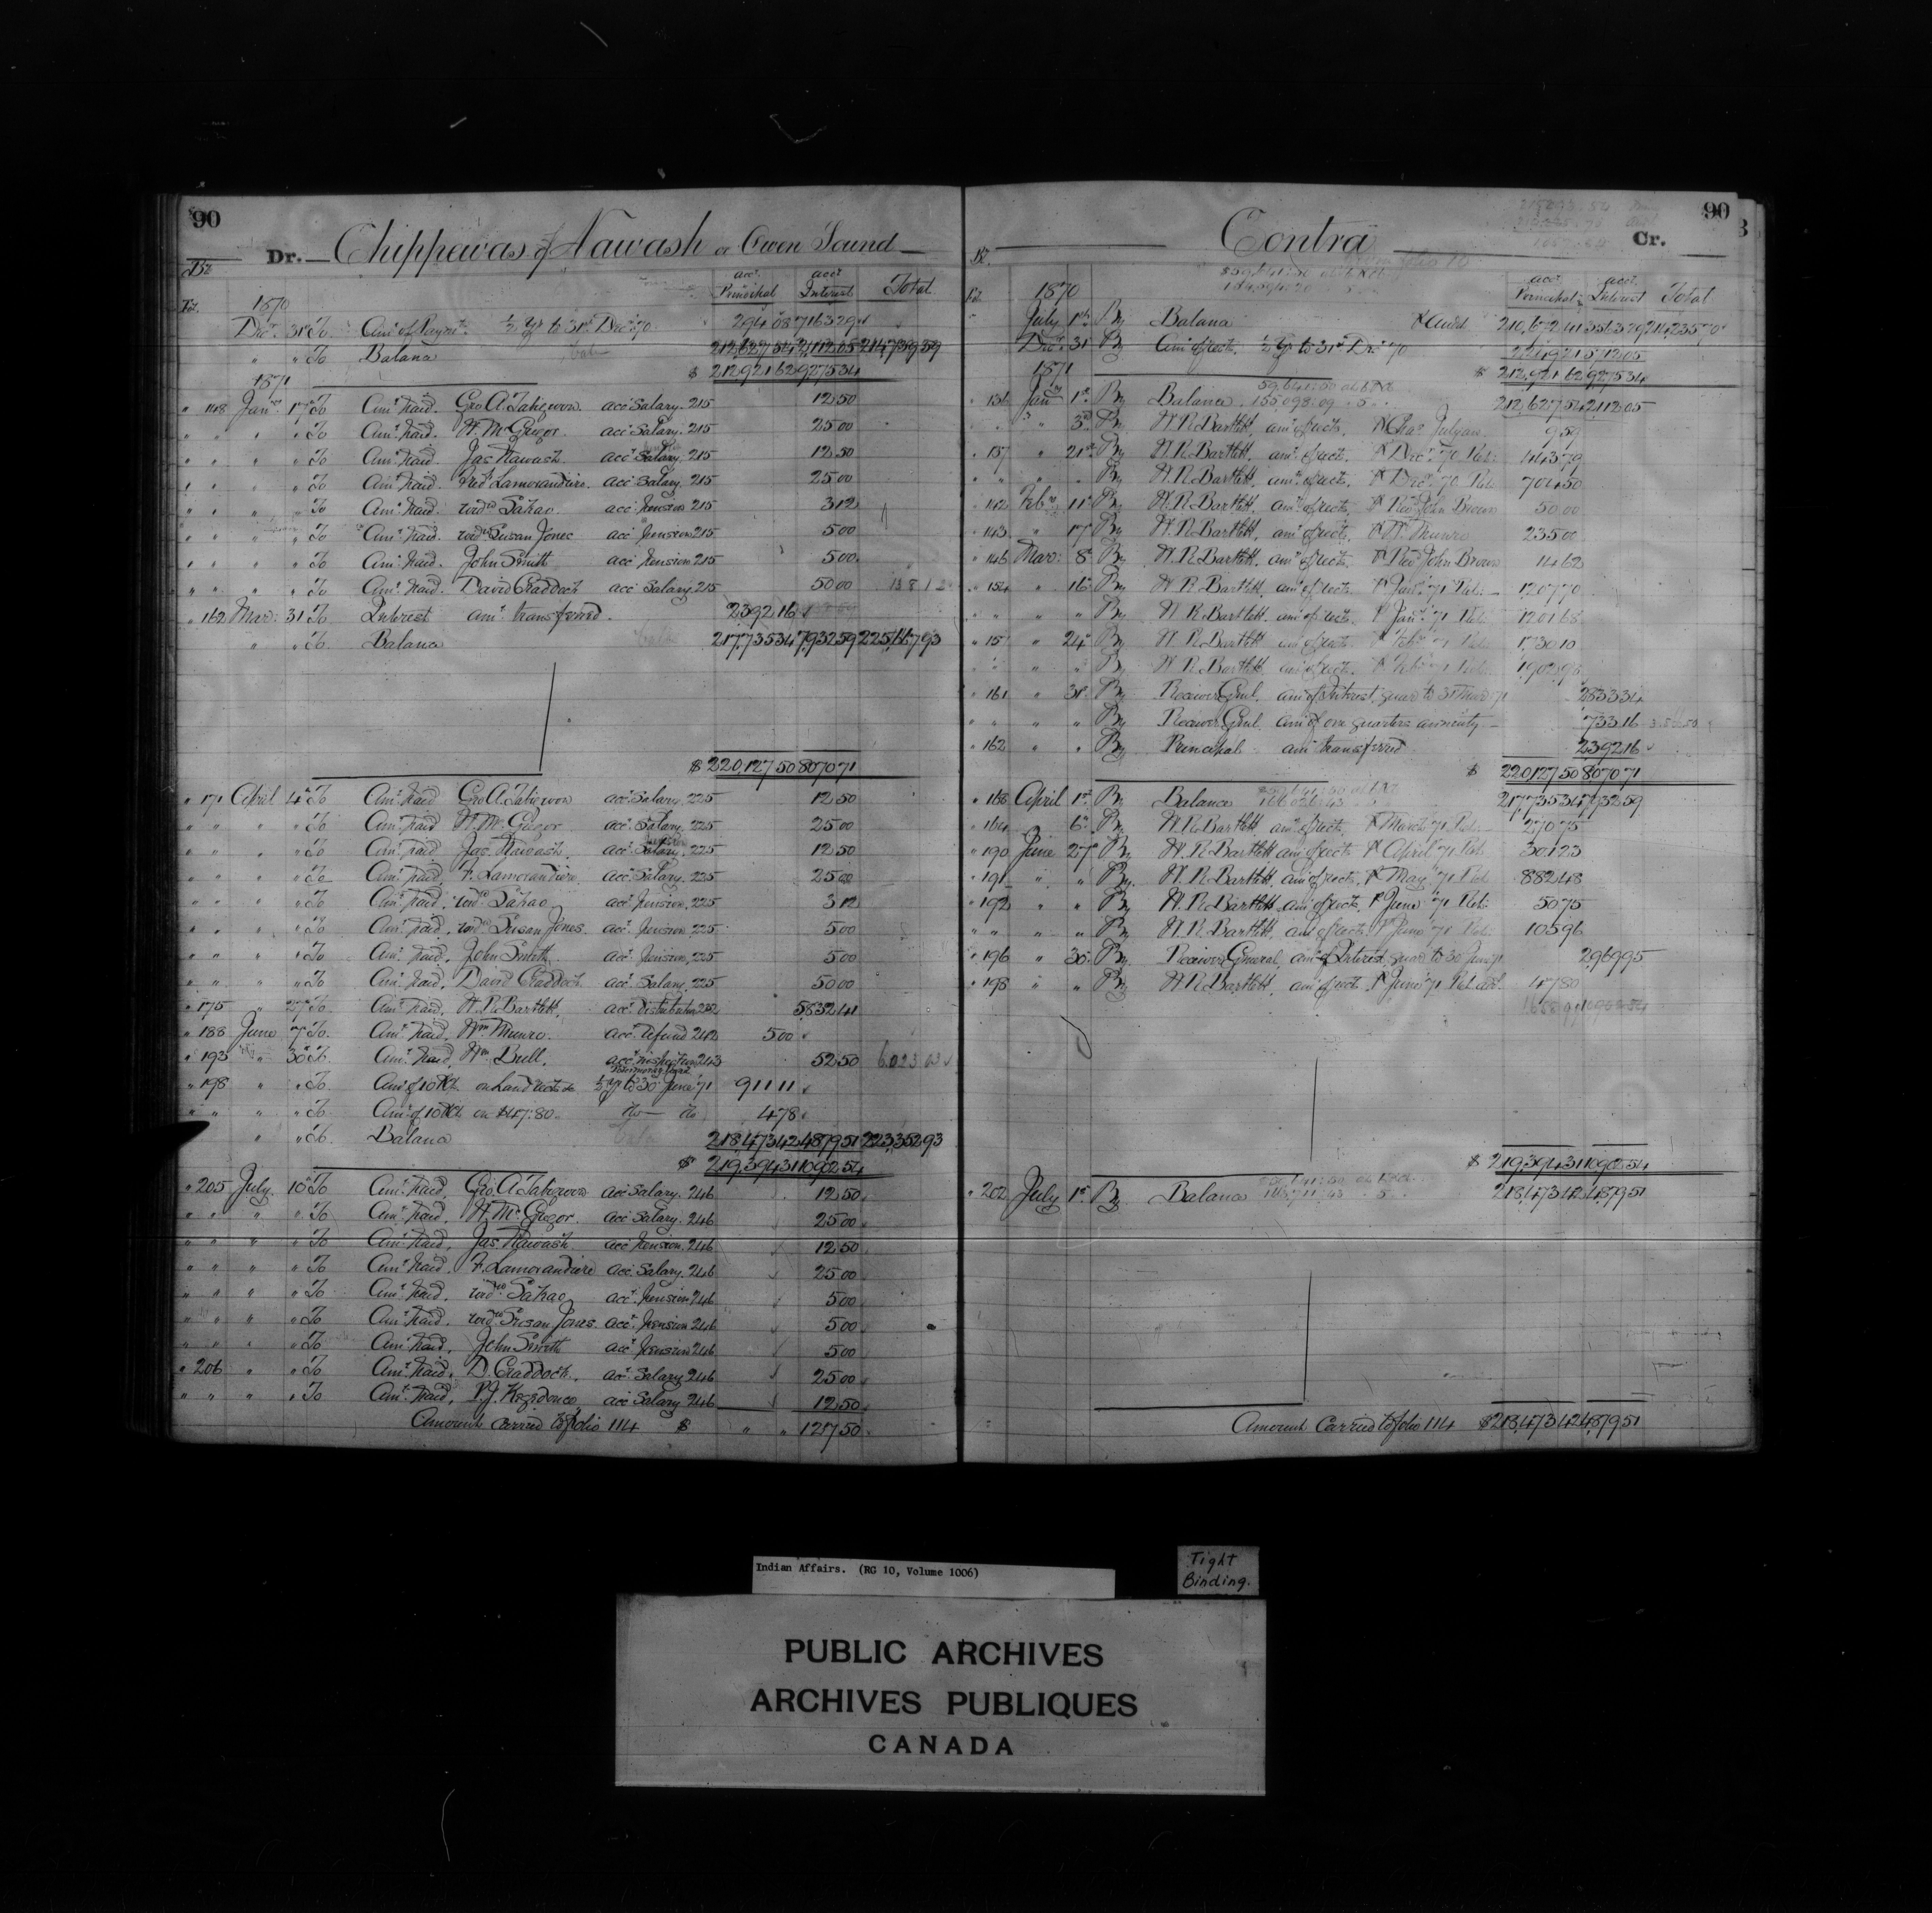 90
Dr. Chippewas of Nawash or Owen Sound
Fol. acct. Principal acct. Interest Total
1870
Decr. 31st To Amt. of Paymts. ½ yr to 31st Decr. 70. 294 08 7163 29
" " To Balance 212,627 54 2,112 05 214,739 59
$ 212,921 62 9275 34
1871
" 148 Jany. 17th To Amt. paid. Geo. A. Tabegwon acct. Salary. 215 12 50
" " " " To Amt. paid. W. McGregor. acct. Salary. 215 25 00
" " " " To Amt. paid. Jas. Nawash acct. Salary. 215 12 50
" " " " To Amt. paid. Fred. Lamorandiere. acct. Salary. 215 25 00
" " " " To Amt. paid. widw. Sahao acct. Pension 215 3 12
" " " " To Amt. paid. widw. Susan Jones acct. Pension 215 5 00
" " " " To Amt. paid. John Smith acct. Pension 215 5 00
" " " " To Amt. paid. David Craddock acct. Salary. 215 50 00 138 12
" 162 Mar: 31 To Interest amt. transferred. 2392 16
" " To Balance 217,735 34 7,932 59 225,667 93
$ 220,127 50 8070 71
" 171 April 4th To Amt. paid Geo. A. Tabegwon acct. Salary. 225 12 50
" " " " To Amt. paid W. McGregor acct. Salary. 225 25 00
" " " " To Amt. paid Jas. Nawash. acct. Salary. 225 12 50
" " " " To Amt. paid, F. Lamorandiere acct. Salary. 225 25 00
" " " " To Amt. paid, widw. Sahao acct. Pension. 225 3 12
" " " " To Amt. paid, widw. Susan Jones. acct. Pension. 225 5 00
" " " " To Amt. paid, John Smith acct. Pension. 225 5 00
" " " " To Amt. paid, David Craddock acct. Salary. 225 50 00
" 175 " 27th To Amt. paid, W. R. Bartlett, acct. distribution 232 5,832 41
" 188 June 7th To Amt. paid, Wm. Munro. acct. refund 242 5 00
" 193 " 30th To Amt. paid, Wm. Bull, acct. inspection 243 52 50 6,023 03
" 198 " " To Amt. of 10 P Ct. on Land rects. ½ yr to 30 June 71 911 11
" " " " To Amt. of 10 P Ct. on $47.80. do do 4 78
" " To Balance 218,473 42 4,879 51 223,352 93
$ 219,394 31 10,902 54
" 205 July. 10th To Amt. paid, Geo. A. Tabegwon acct. Salary. 246 12 50
" " " " To Amt. paid, W. McGregor. acct. Salary. 246 25 00
" " " " To Amt. paid, Jas. Nawash acct. Pension. 246 12 50
" " " " To Amt. paid, F. Lamorandiere acct. Salary. 246 25 00
" " " " To Amt. paid, widw. Sahao acct. Pension 246 5 00
" " " " To Amt. paid, widw. Susan Jones. acct. Pension 246 5 00
" " " " To Amt. paid, John Smith acct. Pension 246 5 00
" 206 " " To Amt. paid, D. Craddock, acct. Salary 246 25 00
" " " " To Amt. paid, P. J. Kegedonce acct. Salary 246 12 50
Amount carried to folio 114 $ " " 127 50
90
Contra Cr.
Fol. acct. Principal acct. Interest Total
1870
July 1st By Balance 210,672 41 3563 29 214,235 70
Decr. 31 By Amt. of rects. ½ yr to 31st Dec 70 2249 21 5712 05
$ 212,921 62 9275 34
1871
" 136 Jany 1st By Balance 212,627 54 2112 05
" " 3rd By W. R. Bartlett, amt. of rects. P Chas. Julyan. 9 59
" 137 " 21st By W. R. Bartlett, amt. of rects. P Decr. 70 Ret: 443 79
" " " By W. R. Bartlett, amt. of rects. P Decr. 70 Ret: 704 50
" 142 Feby. 11th By W. R. Bartlett, amt. of rects. P Revd. John Brown 50 00
" 143 " 17th By W. R. Bartlett, amt. of rects. P W. Munro 235 00
" 146 Mar: 8th By W. R. Bartlett, amt. of rects. P Revd. John Brown 14 62
" 154 " 16th By W. R. Bartlett, amt. of rects. P Jany. 71 Ret: 1207 70
" " " " By W. R. Bartlett, amt. of rects. P Jany. 71 Ret: 1201 68
" 157 " 24th By W. R. Bartlett amt. of rects. P Feby. 71 Ret: 1730 10
" " " By W. R. Bartlett amt. of rects. P Feby. 71 Ret: 1902 98
" 161 " 31st By Receiver Genl. amt. of Interest, quar to 31 Mar 71 2833 34
" " " " By Receiver Genl. amt. of one quarters annuity 733 16
" 162 " " By Principal amt. transferred 2392 16
$ 220,127 50 8070 71
" 168 April 1st By Balance 217,735 34 7,932 59
" 164 " 6th By W. R. Bartlett, amt. of rects. P March 71 Ret: 270 75
" 190 June 27th By W. R. Bartlett amt. of rects. P April 71 Ret: 301 23
" 191 " " By W. R. Bartlett, amt. of rects. P May 71 Ret 882 48
" 192 " " By W. R. Bartlett, amt. of rects. P June 71 Ret: 50 75
" " " " By W. R. Bartlett, amt. of rects. P June 71 Ret: 105 96
" 196 " 30th By Receiver General, amt. of Interest, quar to 30 June 71 2,969 95
" 198 " " By W. R. Bartlett, amt. of rects. P June 71 Ret. 47 80
$ 219,394 31 10,902 54
" 202 July 1st By Balance 218,473 42 4,879 51
Amount Carried to folio 114 $ 218,473 42 4,879 51
Indian Affairs. (RG 10, Volume 1006)
Tight
Binding.
PUBLIC ARCHIVES
ARCHIVES PUBLIQUES
CANADA